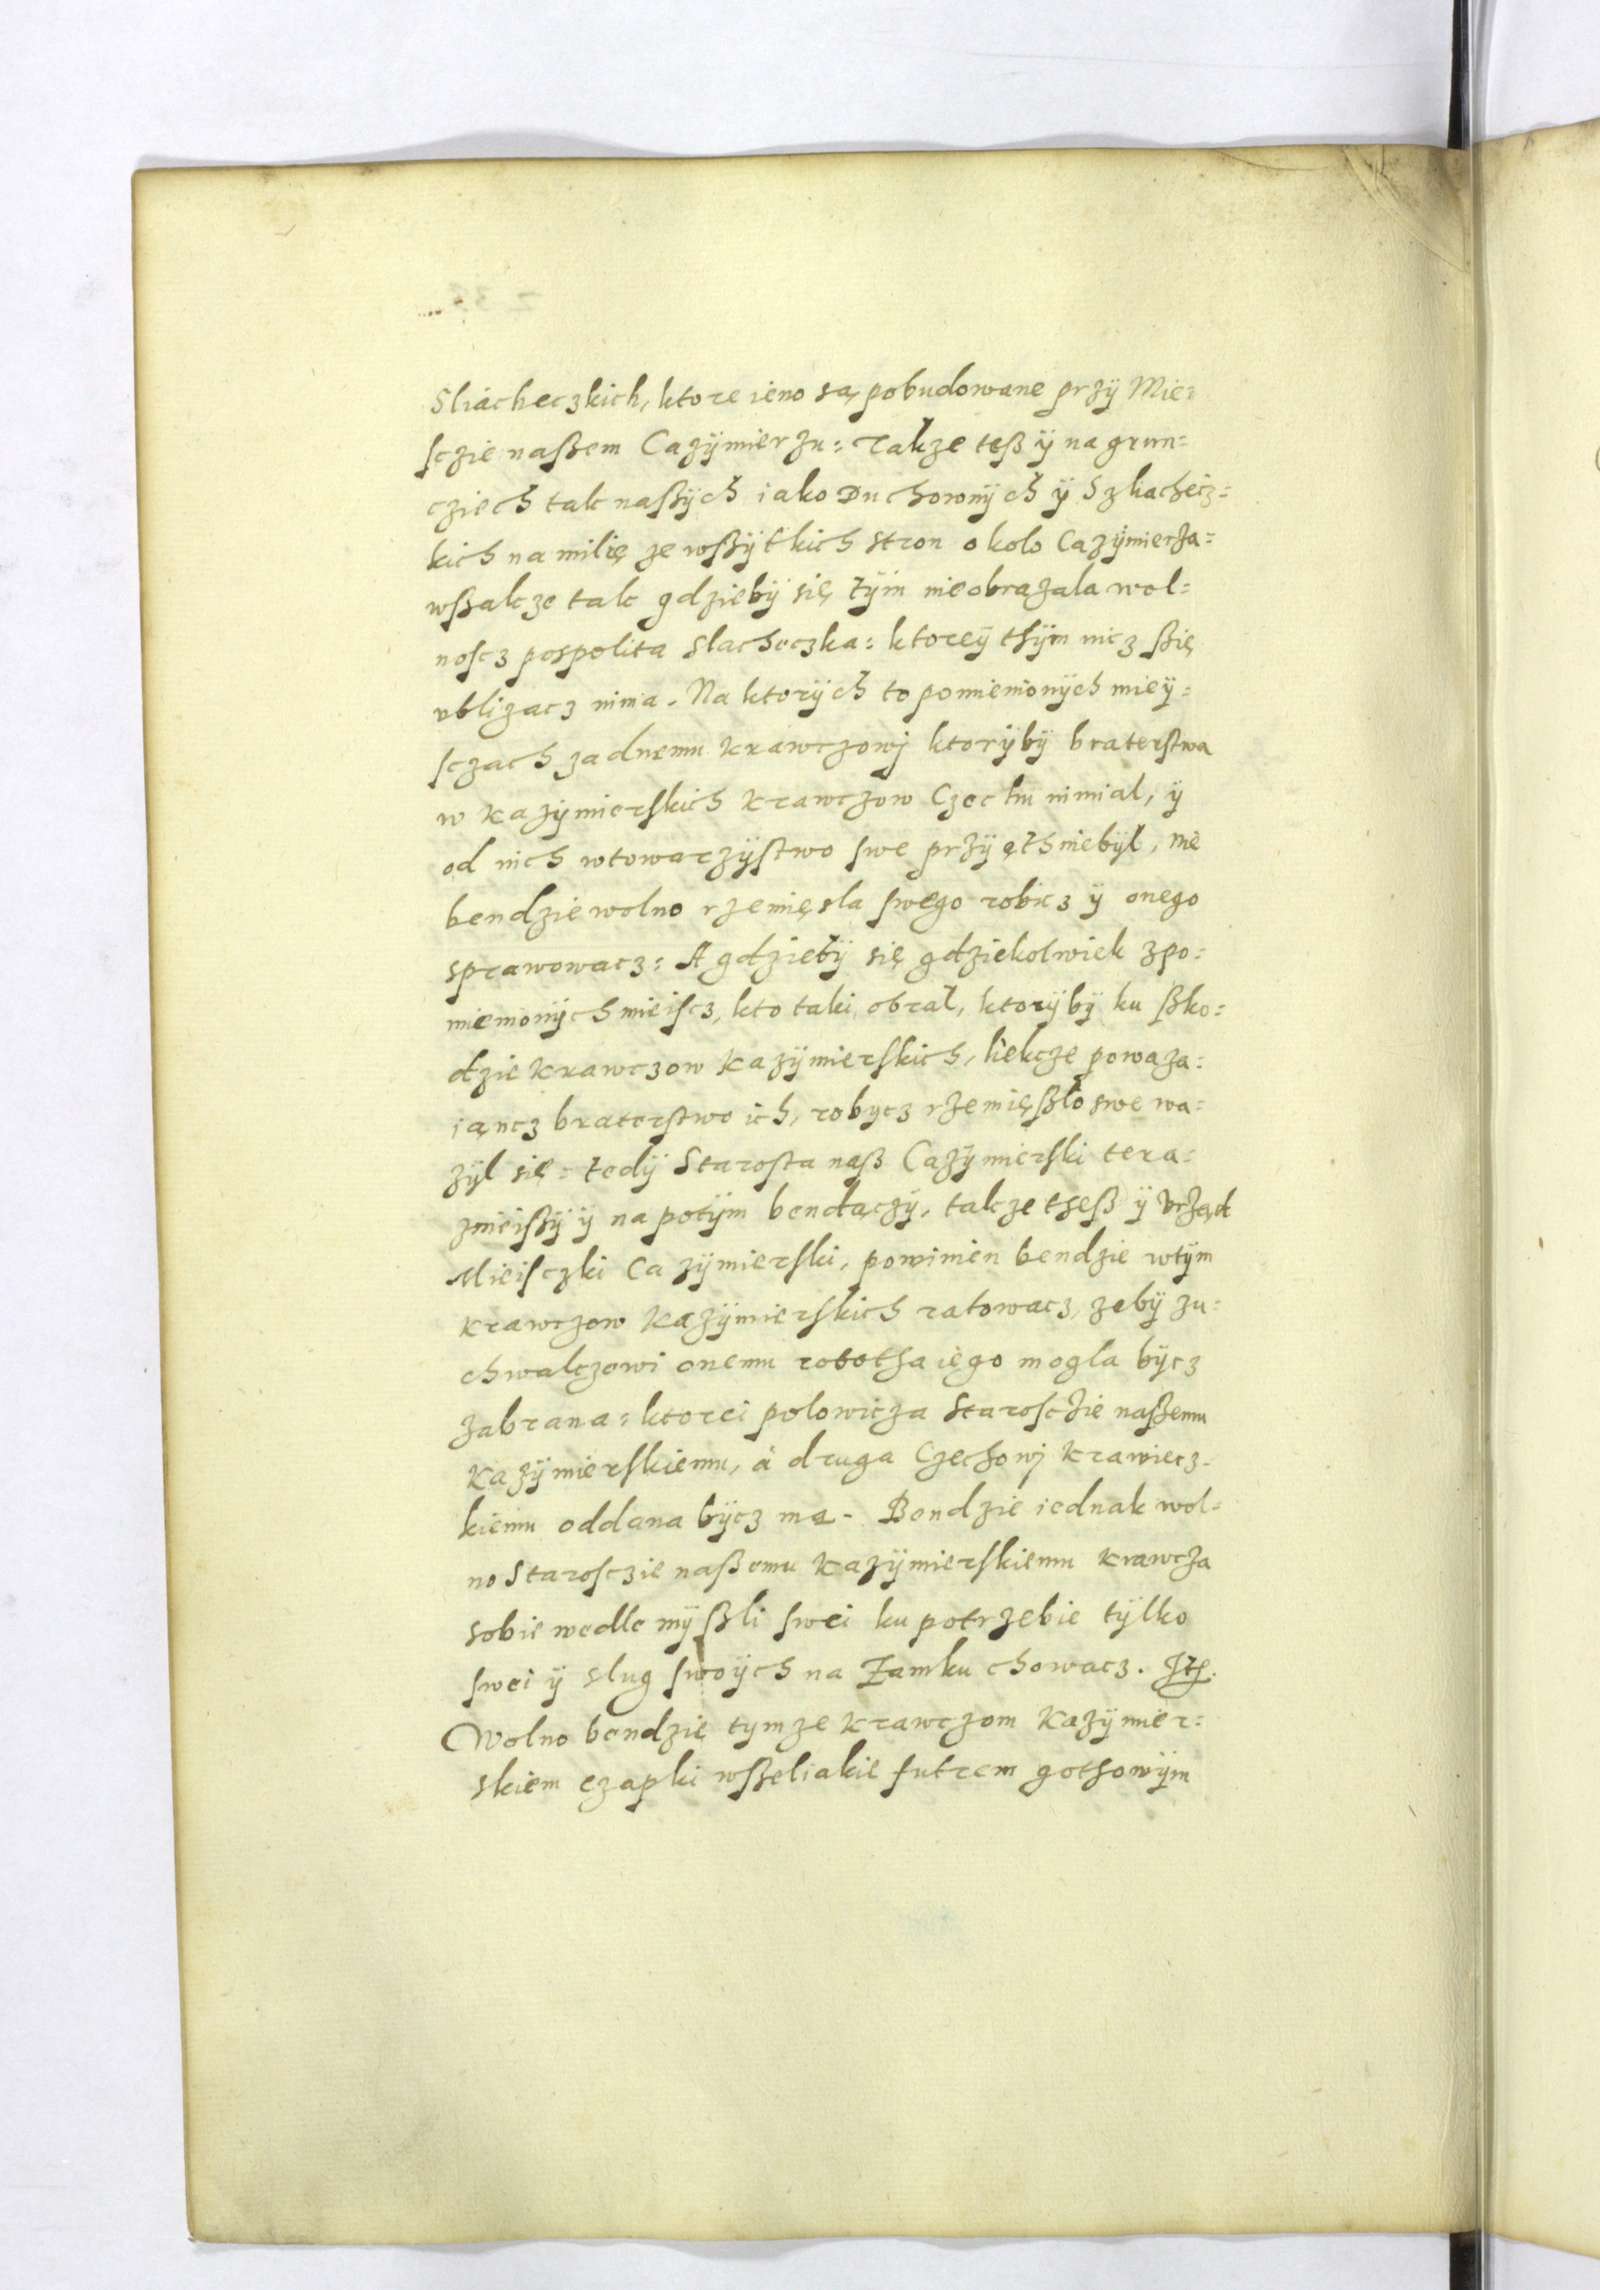 Sliacheczkich, ktore ieno są pobudowane przÿ Miei
sczie naßem Cazÿmierzu: Takze teß ÿ na grun=
cziech tak naßÿch iako Duchownÿch ÿ Szlachecz=
kich na milię ze wßÿtkich stron okolo Cazÿmierza=
wßakze tak gdziebÿ się tÿm nieobrazala wol=
noscz pospolita slacheczka: ktoreÿ thÿm nicz ßię
vblizacz nima. Na ktorÿch to pomienionÿch mieÿ=
sczach zadnemu krawczowj ktorÿbÿ braterstwa
w Kazÿmierskich krawczow Czechu nimial, ÿ
od nich wtowarzÿstwo swe przÿęth niebÿl, nie
bendzie wolno rzemięsla swego robicz ÿ onego
sprawowacz: A gdziebÿ się gdziekolwiek zpo=
mienionÿch mieiscz, kto taki obral, ktorÿbÿ ku ßko=
dzie krawczow Kazÿmierskich, liekcze powaza=
iąncz braterstwo ich, robycz rzemięßlo swe wa=
zÿl się= tedÿ Starosta naß Cazÿmierski tera=
znieißÿ ÿ na potÿm bendączÿ, takze theß ÿ Vrząd
Mieisczki Cazÿmierski, powinien bendzie wtÿm
krawczow Kazÿmierskich ratowacz, zebÿ zu=
chwalczowi onemu robotha iego mogla bÿcz
zabrana: ktorei polowicza Starosczie naßemu
Kazÿmierskiemu, á druga Czechowj krawiecz=
kiemu oddana bÿcz ma. Bendzie iednak wol=
no Starosczie naßemu Kazÿmierskiemu krawcza
sobie wedle mÿßli swei ku potrzebie tÿlko
swei ÿ slug swoÿch na Zamku chowacz. Itẽ.
Wolno bendzie tymze krawczom Kazÿmier=
skiem czapki wßeliakie futrem gothowÿm